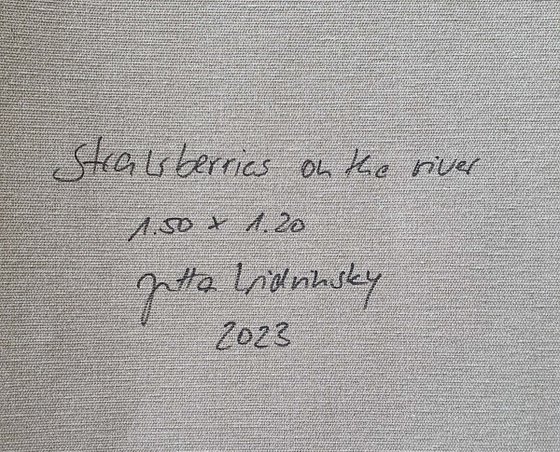 Strawberries on the river
1.50 x 1.20
Jutta
2023